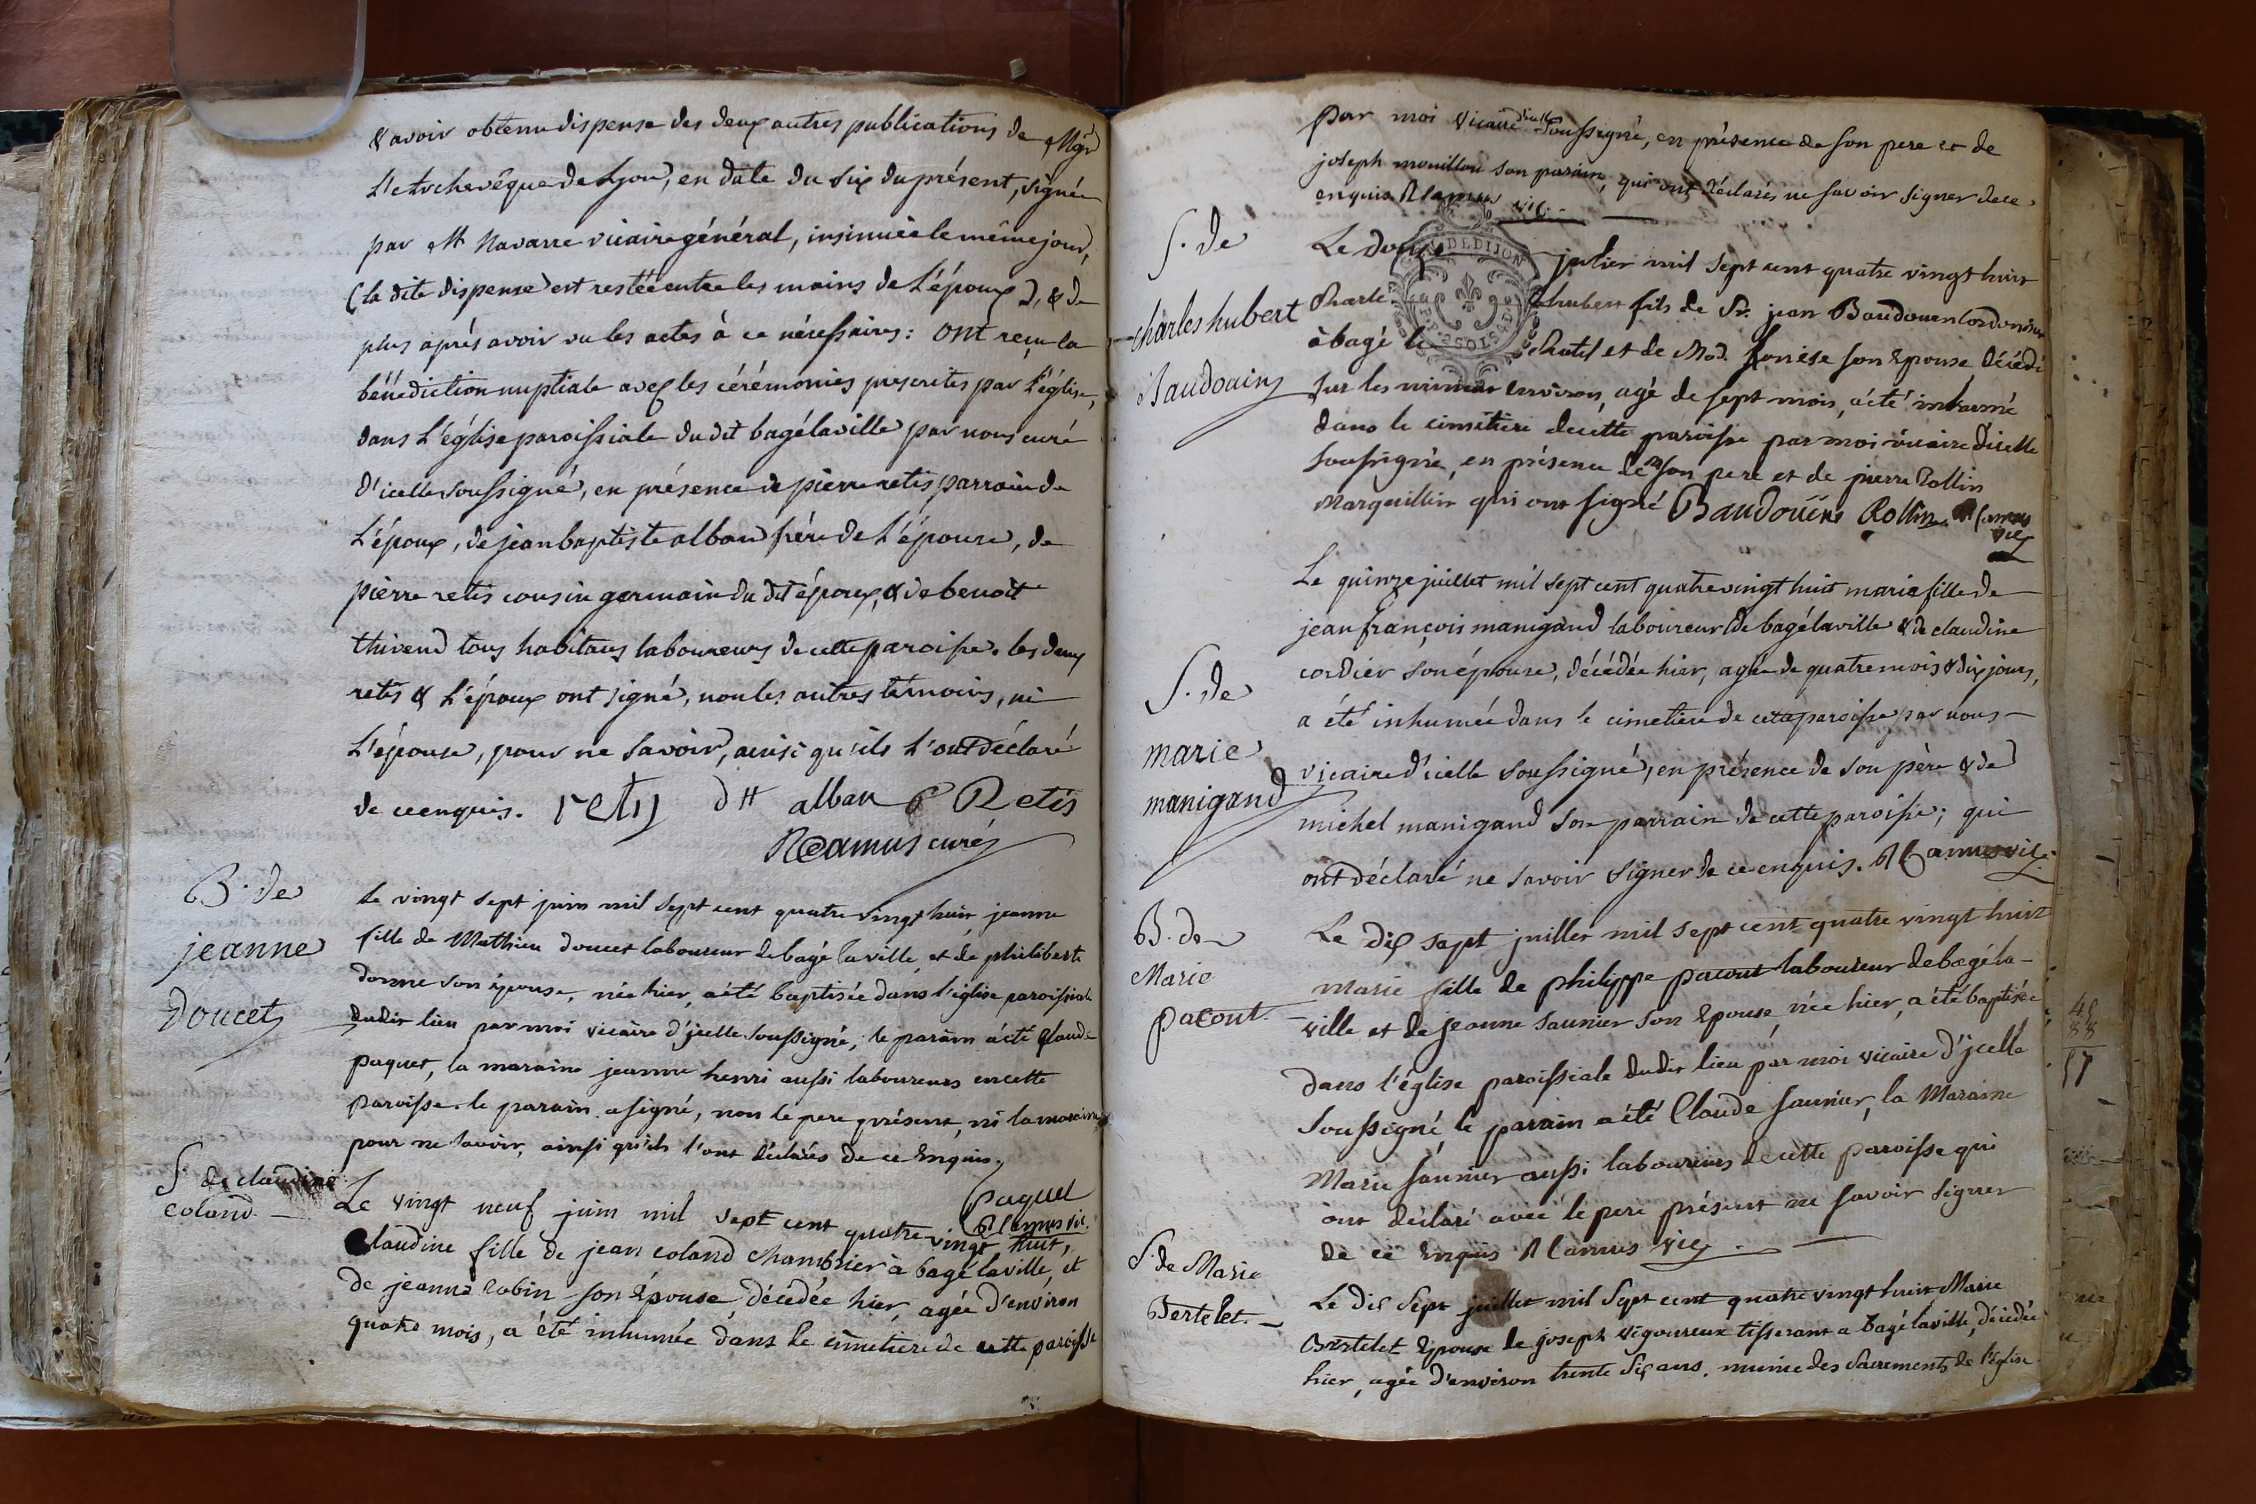 & avoir obtenu dispense des deux autres publications de Mgr
L'archevêque de Lyon, en date du six du présent, signée
par Mr Navarre vicaire général, insinuée le même jour,
(la dite dispense est restée entre les mains de L'époux), & de
plus aprés avoir vu les actes à ce nécessaires: ont reçu la
bénédiction nuptiale avec les cérémonies prescrites par L'église,
dans L'église paroissiale du dit bagélaville par nous curé
d'icelle soussigné, en présence de pierre retis parrain de
L'époux, de jean baptiste alban frére de L'épouse, de
pierre retis cousin germain du dit époux, & de benoit
thivend tous habitans laboureurs de cette paroisse. les deux
retis & L'époux ont signé, non les autres témoins, ni
L'épouse, pour ne savoir, ainsi qu'ils L'ont déclaré
de ce enquis. retis alban Retis
camus curé
B. de
jeanne
Doucet
Le vingt sept juin mil sept cent quatre vingt huit jeanne
fille de Mathieu doucet laboureur de bagé la ville, et de philiberte
donne son épouse, née hier, a été baptisée dans l'église paroissiale
dudit lieu par moi vicaire d'jcelle soussigné; le parain a été Claude
paquet, la maraine jeanne henri aussi laboureurs en cette
paroisse. le parain a signé, non le pere présent, ni la maraine
pour ne savoir, ainsi qu'ils l'ont déclarés de ce Enquis.
paquet
Camus vic.
S. de claudine
coland.
Le vingt neuf juin mil sept cent quatre vingt huit,
Claudine fille de jean coland chambrier à bagé laville, et
de jeanne robin son Epouse, décédée hier, agée d'environ
quatre mois, a été inhumée dans le cimetiere de cette paroisse
par moi vicaire d'icelle soussigné, en présence de son pere et de
joseph mouillon son parain, qui ont déclarés ne savoir signer de ce
enquis Camus vic.
S. de
charles hubert
Baudouin
Le douze julier mil sept cent quatre vingt huit
Charle hubert fils de Sr. jean Baudouin cordonnier
à bagé le Chatel et de Mad. son Epouse décédé
sur les environ, agé de sept mois, a été inhumé
dans le cimitiere de cette paroisse par moi vicaire d'icelle
soussigné, en présence de son pere et de pierre Rollin
Marguillier qui ont signé Baudouin Rollin Camus
vic
S. de
marie
manigand
Le quinze juillet mil sept cent quatre vingt huit marie fille de
jean françois manigand laboureur de bagélaville & de claudine
cordier son épouse, décédée hier, agée de quatre mois & dix jours,
a été inhumée dans le cimetiere de cette paroisse par nous
vicaire d'icelle soussigné, en présence de son père & de
michel manigand son parrain de cette paroisse; qui
ont déclaré ne savoir signer de ce enquis. Camus vic.
B. de
Marie
pacout.
Le dix sept juillet mil sept cent quatre vingt huit
marie fille de philippe pacout laboureur de bagéla-
ville et de jeanne saunier son Epouse, née hier, a été baptisée
dans l'église paroissiale dudit lieu par moi vicaire d'jcelle
soussigné, le parain a été Claude saunier, la Maraine
Marie saunier aussi laboureurs de cette paroisse qui
ont déclaré avec le pere présent ne savoir signer
de ce Enquis Camus vic.
S. de Marie
Bertelet.
Le dix Sept juillet mil Sept cent quatre vingt huit Marie
Bertelet Epouse de joseph vigoureux tisserant a bagé laville, décédée
hier, agée d'environ trente six ans, munie des sacrements de l'église